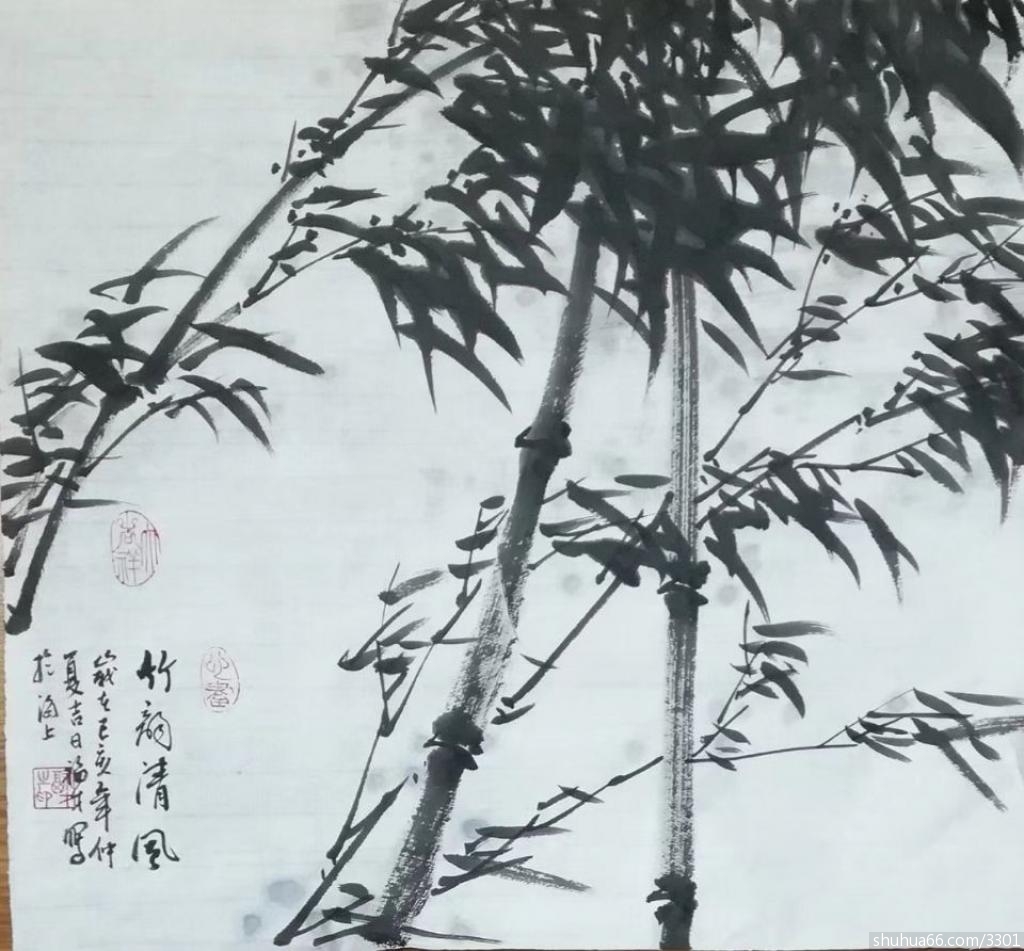 竹韵清风
岁在己亥年仲
夏吉日福林写
於海上
吉祥
shuhua66.com/3301